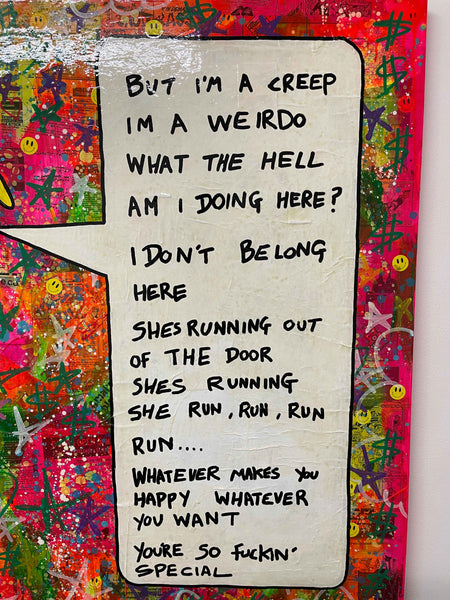 BUT I'M A CREEP
IM A WEIRDO
WHAT THE HELL
AM I DOING HERE?
I DON'T BELONG
HERE
SHES RUNNING OUT
OF THE DOOR
SHES RUNNING
SHE RUN, RUN, RUN
RUN....
WHATEVER MAKES YOU
HAPPY WHATEVER
YOU WANT
YOU'RE SO FUCKIN'
SPECIAL